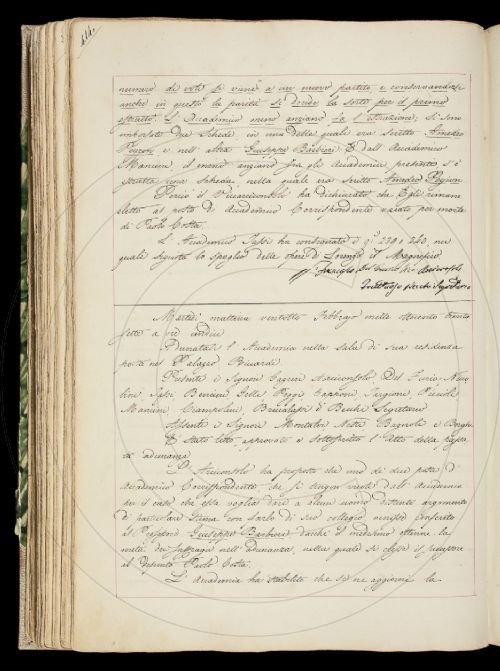 numero di voti si viene a un nuovo partito, e conservandosi
anche in questo la parità si decide la sorte per il primo
estratto. L'Accademico meno anziano fa l'estrazione; si sono
imborsate due schede in una delle quali era scritto Amedeo
Peyron e nell'altra Giuseppe Barbieri. E dall'Accademico
Mancini, il meno anziano fra gli Accademici presenti s'è
estratta una scheda nella quale era scritto Amedeo Peyron
Perciò il Vicearciconsolo ha dichiarato che Egli rimane
eletto al posto di Accademico Corrispondente vacato per morte
di Paolo Costa.
L'Accademico ha consegnato i qi 239 e 240, nei
quali seguita lo spoglio delle opere di Lorenzo il Magnifico.
Del Furia Vice Arciconsolo
Fruttuoso Becchi Segretario
Martedì mattina ventotto Febbrajo mille ottocento trenta
sette a ore undici
Adunatasi l'Accademia nella sala di sua residenza
posta nel Palazzo Riccardi.
Presenti i Signori Arciconsolo, Del Furia, Nicco
lini, Bencini, Gelli, Poggi, Capponi,
Mancini, Ciampolini, Brucalassi e Becchi Segretario
Assenti i Signori Montalvi Nesti Bagnoli e Borghi
È stato letto approvato e sottoscritto l'Atto della passa
ta adunanza
L'Arciconsolo ha proposto che uno dei due posti d'
Accademico Corrispondente che si vacati dall'Accademia
per il caso che essa voglia dare a alcun uomo distinto argomento
di particolare stima con farlo di suo collegio venisse conferito
al Professore Giuseppe Barbieri, dacché il medesimo ottenne la
metà dei suffragi nell'adunanza nella quale si elesse il successore
al defunto Paolo Costa.
L'Accademia ha stabilito che se ne aggiorni la